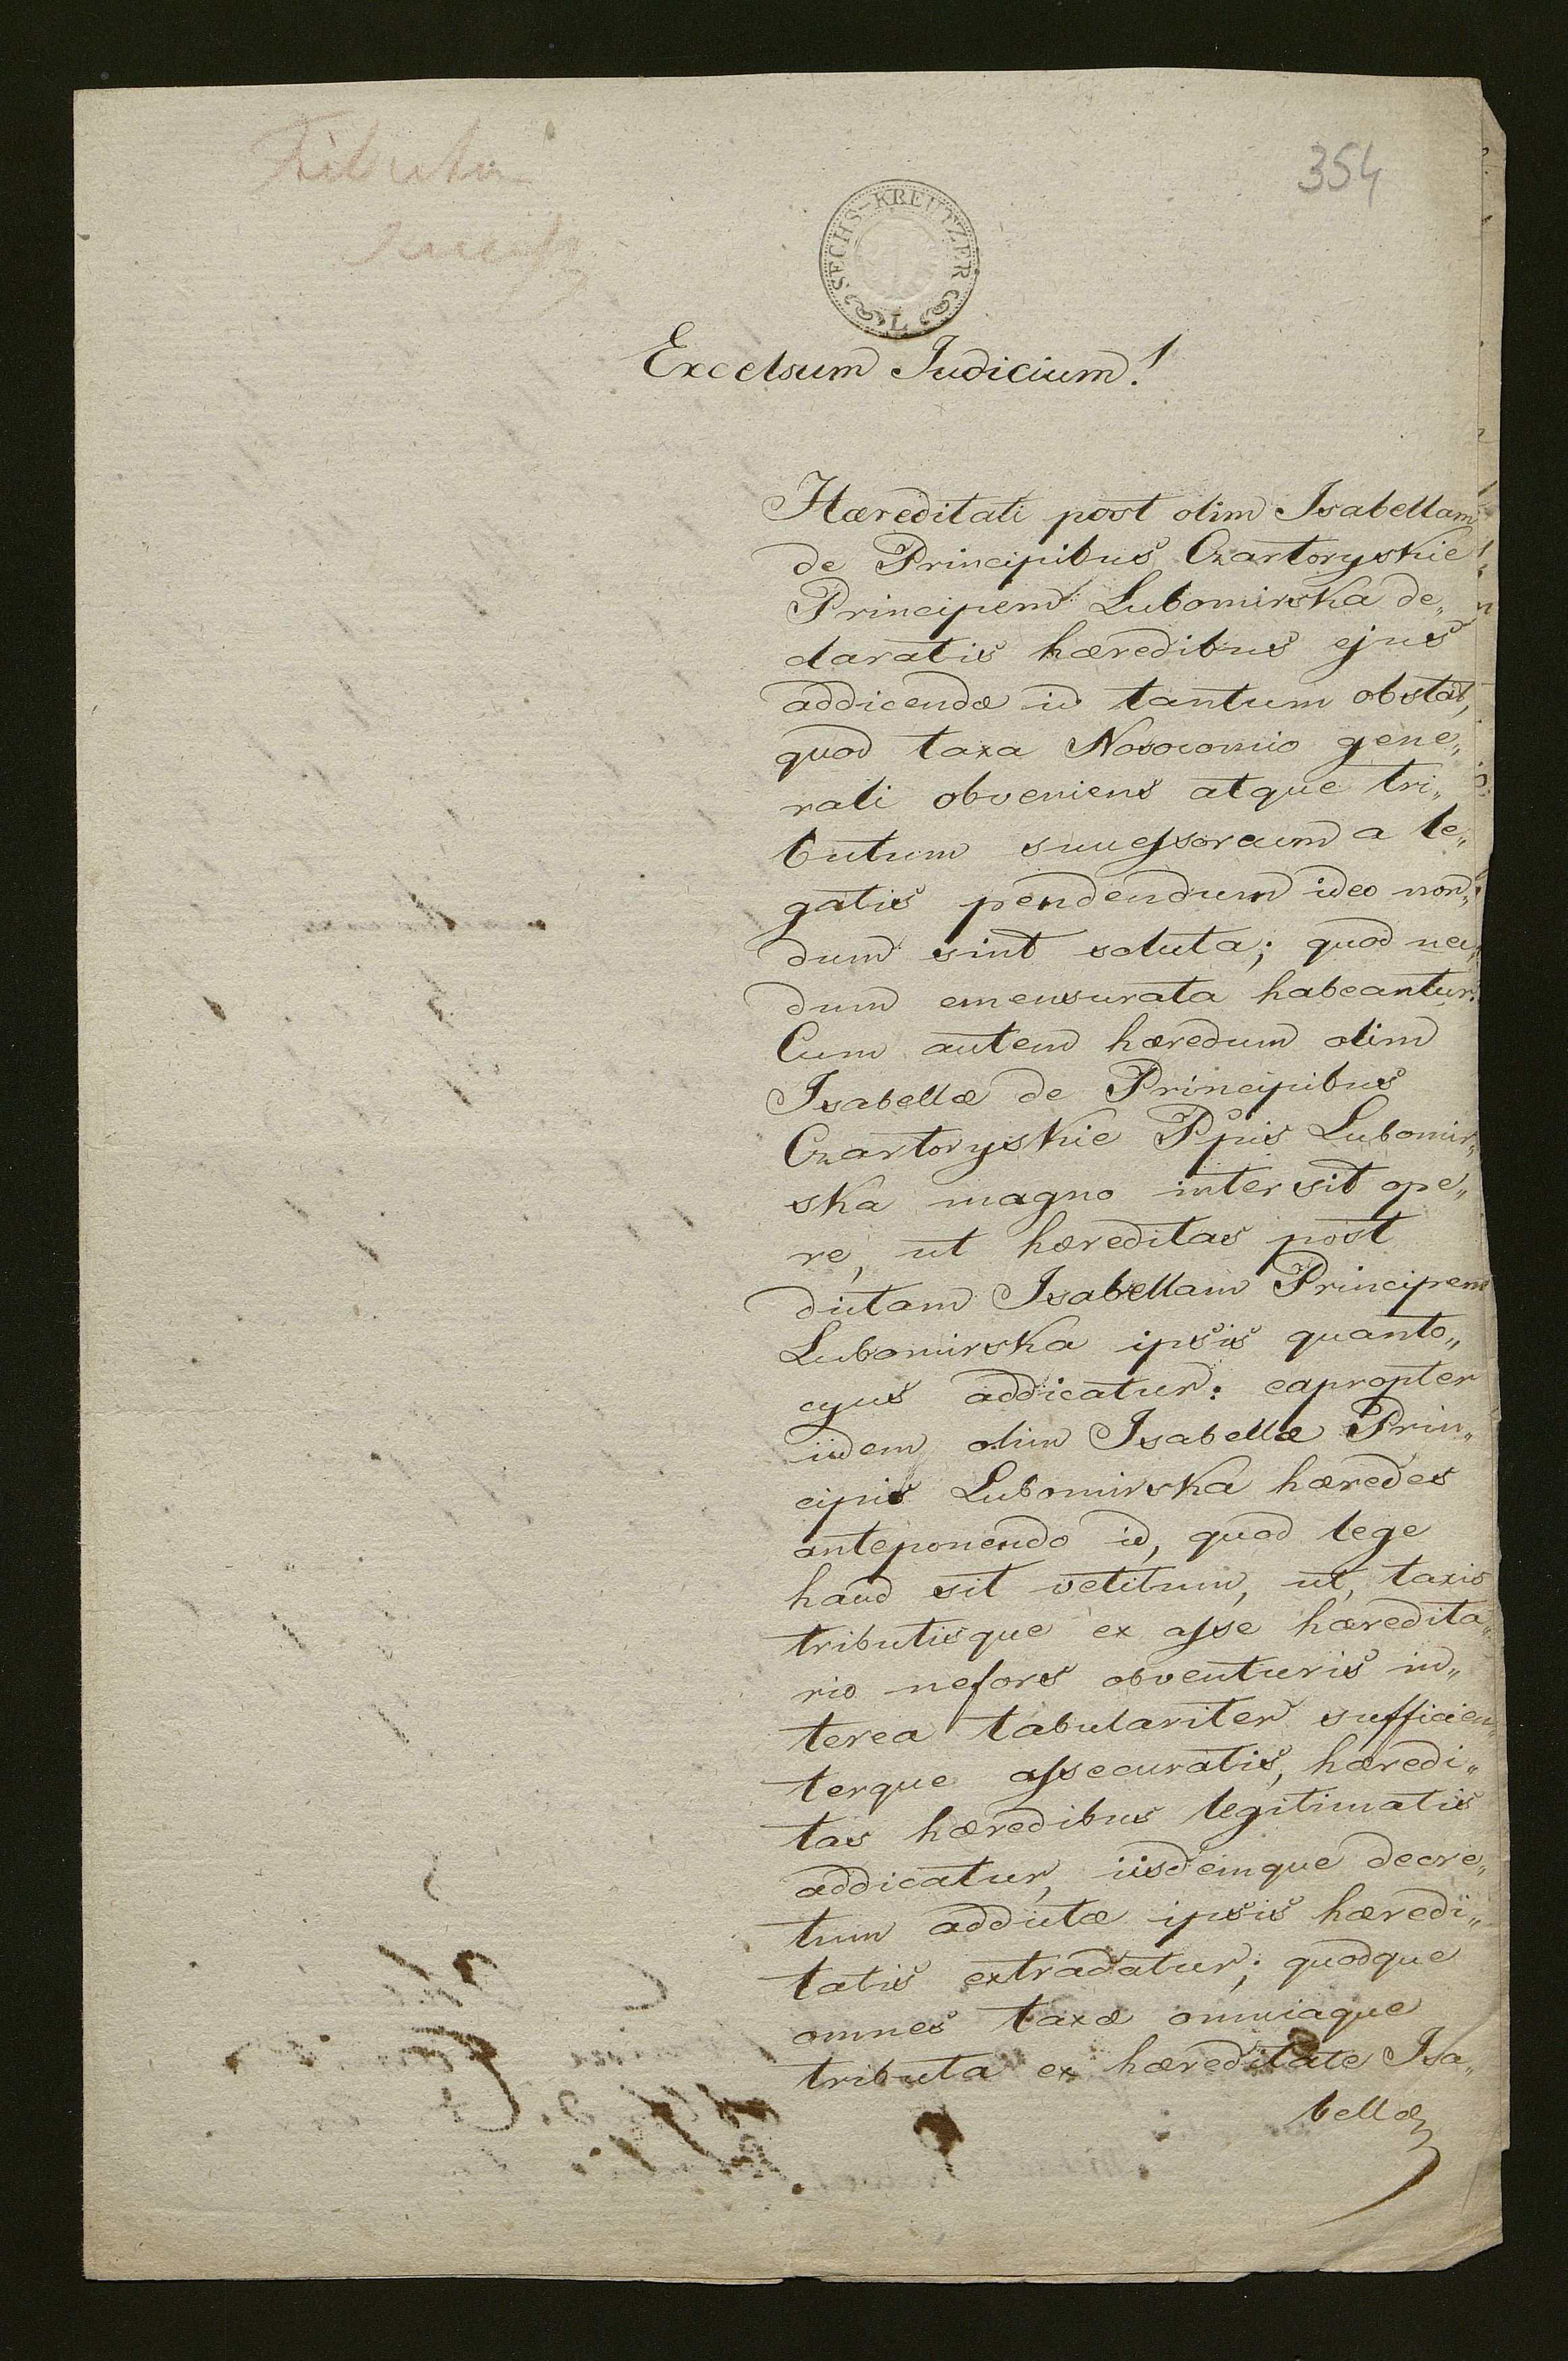 354
SECHS-KREUTZER
L
Excelsum Judicium!
Hæreditati post olim Isabellam
de Principibus Czartoryskie
Principem Lubomirska de„
claratis hæredibus ejus
addicendæ id tantum obstat,
quod taxa Nosocomio gene„
rali obveniens atque tri„
butum successoraeum a le„
gatis pendendum ideo non„
dum sint soluta; quod nec„
dum emensurata habeantur.
Cum autem hæredum olim
Isabellæ de Principibus
Czartoryskie Ppis Lubomir„
ska magno intersit ope„
re, ut hæreditas post
dictam Isabellam Principem
Lubomirska ipsis quanto„
cyus addicatur: eapropter
iidem olim Isabellæ Prin„
cipis Lubomirska hæredes
anteponendo id, quod lege
haud sit vetitum, ut, taxis
tributisque ex asse hæredita„
rio nefors obventuris in„
terea tabulariter sufficien„
terque assecuratis, hæredi„
tas hæredibus legitimatis
addicatur, iisdemque decre„
tum addictæ ipsis hæredi„
tatis extradatur; quodque
omnes taxæ omniaque
tributa ex hæreditate Isa„
bellæ